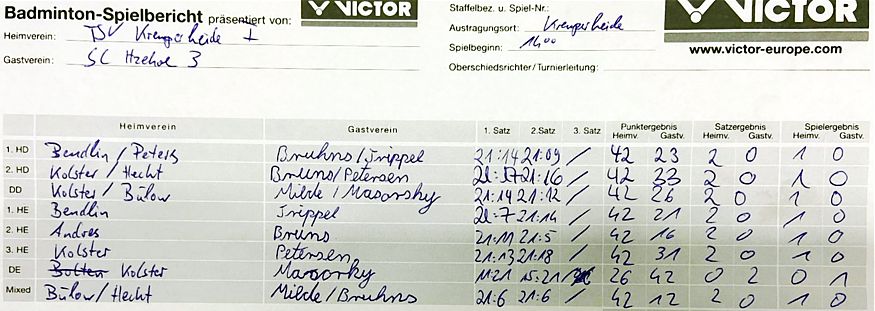 Badminton-Spielbericht präsentiert von: VICTOR
Heimverein: TSV Krempeheide I
Gastverein: SC Itzehoe 3
Staffelbez. u. Spiel-Nr.:
Austragungsort: Krempeheide
Spielbeginn: 14:00
Oberschiedsrichter / Turnierleitung:
VICTOR
www.victor-europe.com
Heimverein Gastverein 1. Satz 2.Satz 3. Satz Punktergebnis Heimv. Gastv. Satzergebnis Heimv. Gastv. Spielergebnis Heimv. Gastv.
1. HD Bendlin / Peters Bruhns / Trippel 21:14 21:09 / 42 23 2 0 1 0
2. HD Kolster / Hecht Bruns / Petersen 21:17 21:16 / 42 33 2 0 1 0
DD Kolster / Bülow Milde / Masorsky 21:14 21:12 / 42 26 2 0 1 0
1. HE Bendlin Trippel 21:7 21:14 / 42 21 2 0 1 0
2. HE Andres Bruns 21:11 21:5 / 42 16 2 0 1 0
3. HE Kolster Petersen 21:13 21:18 / 42 31 2 0 1 0
DE Kolster Masorsky 11:21 15:21 / 26 42 0 2 0 1
Mixed Bülow / Hecht Milde / Bruhns 21:6 21:6 / 42 12 2 0 1 0